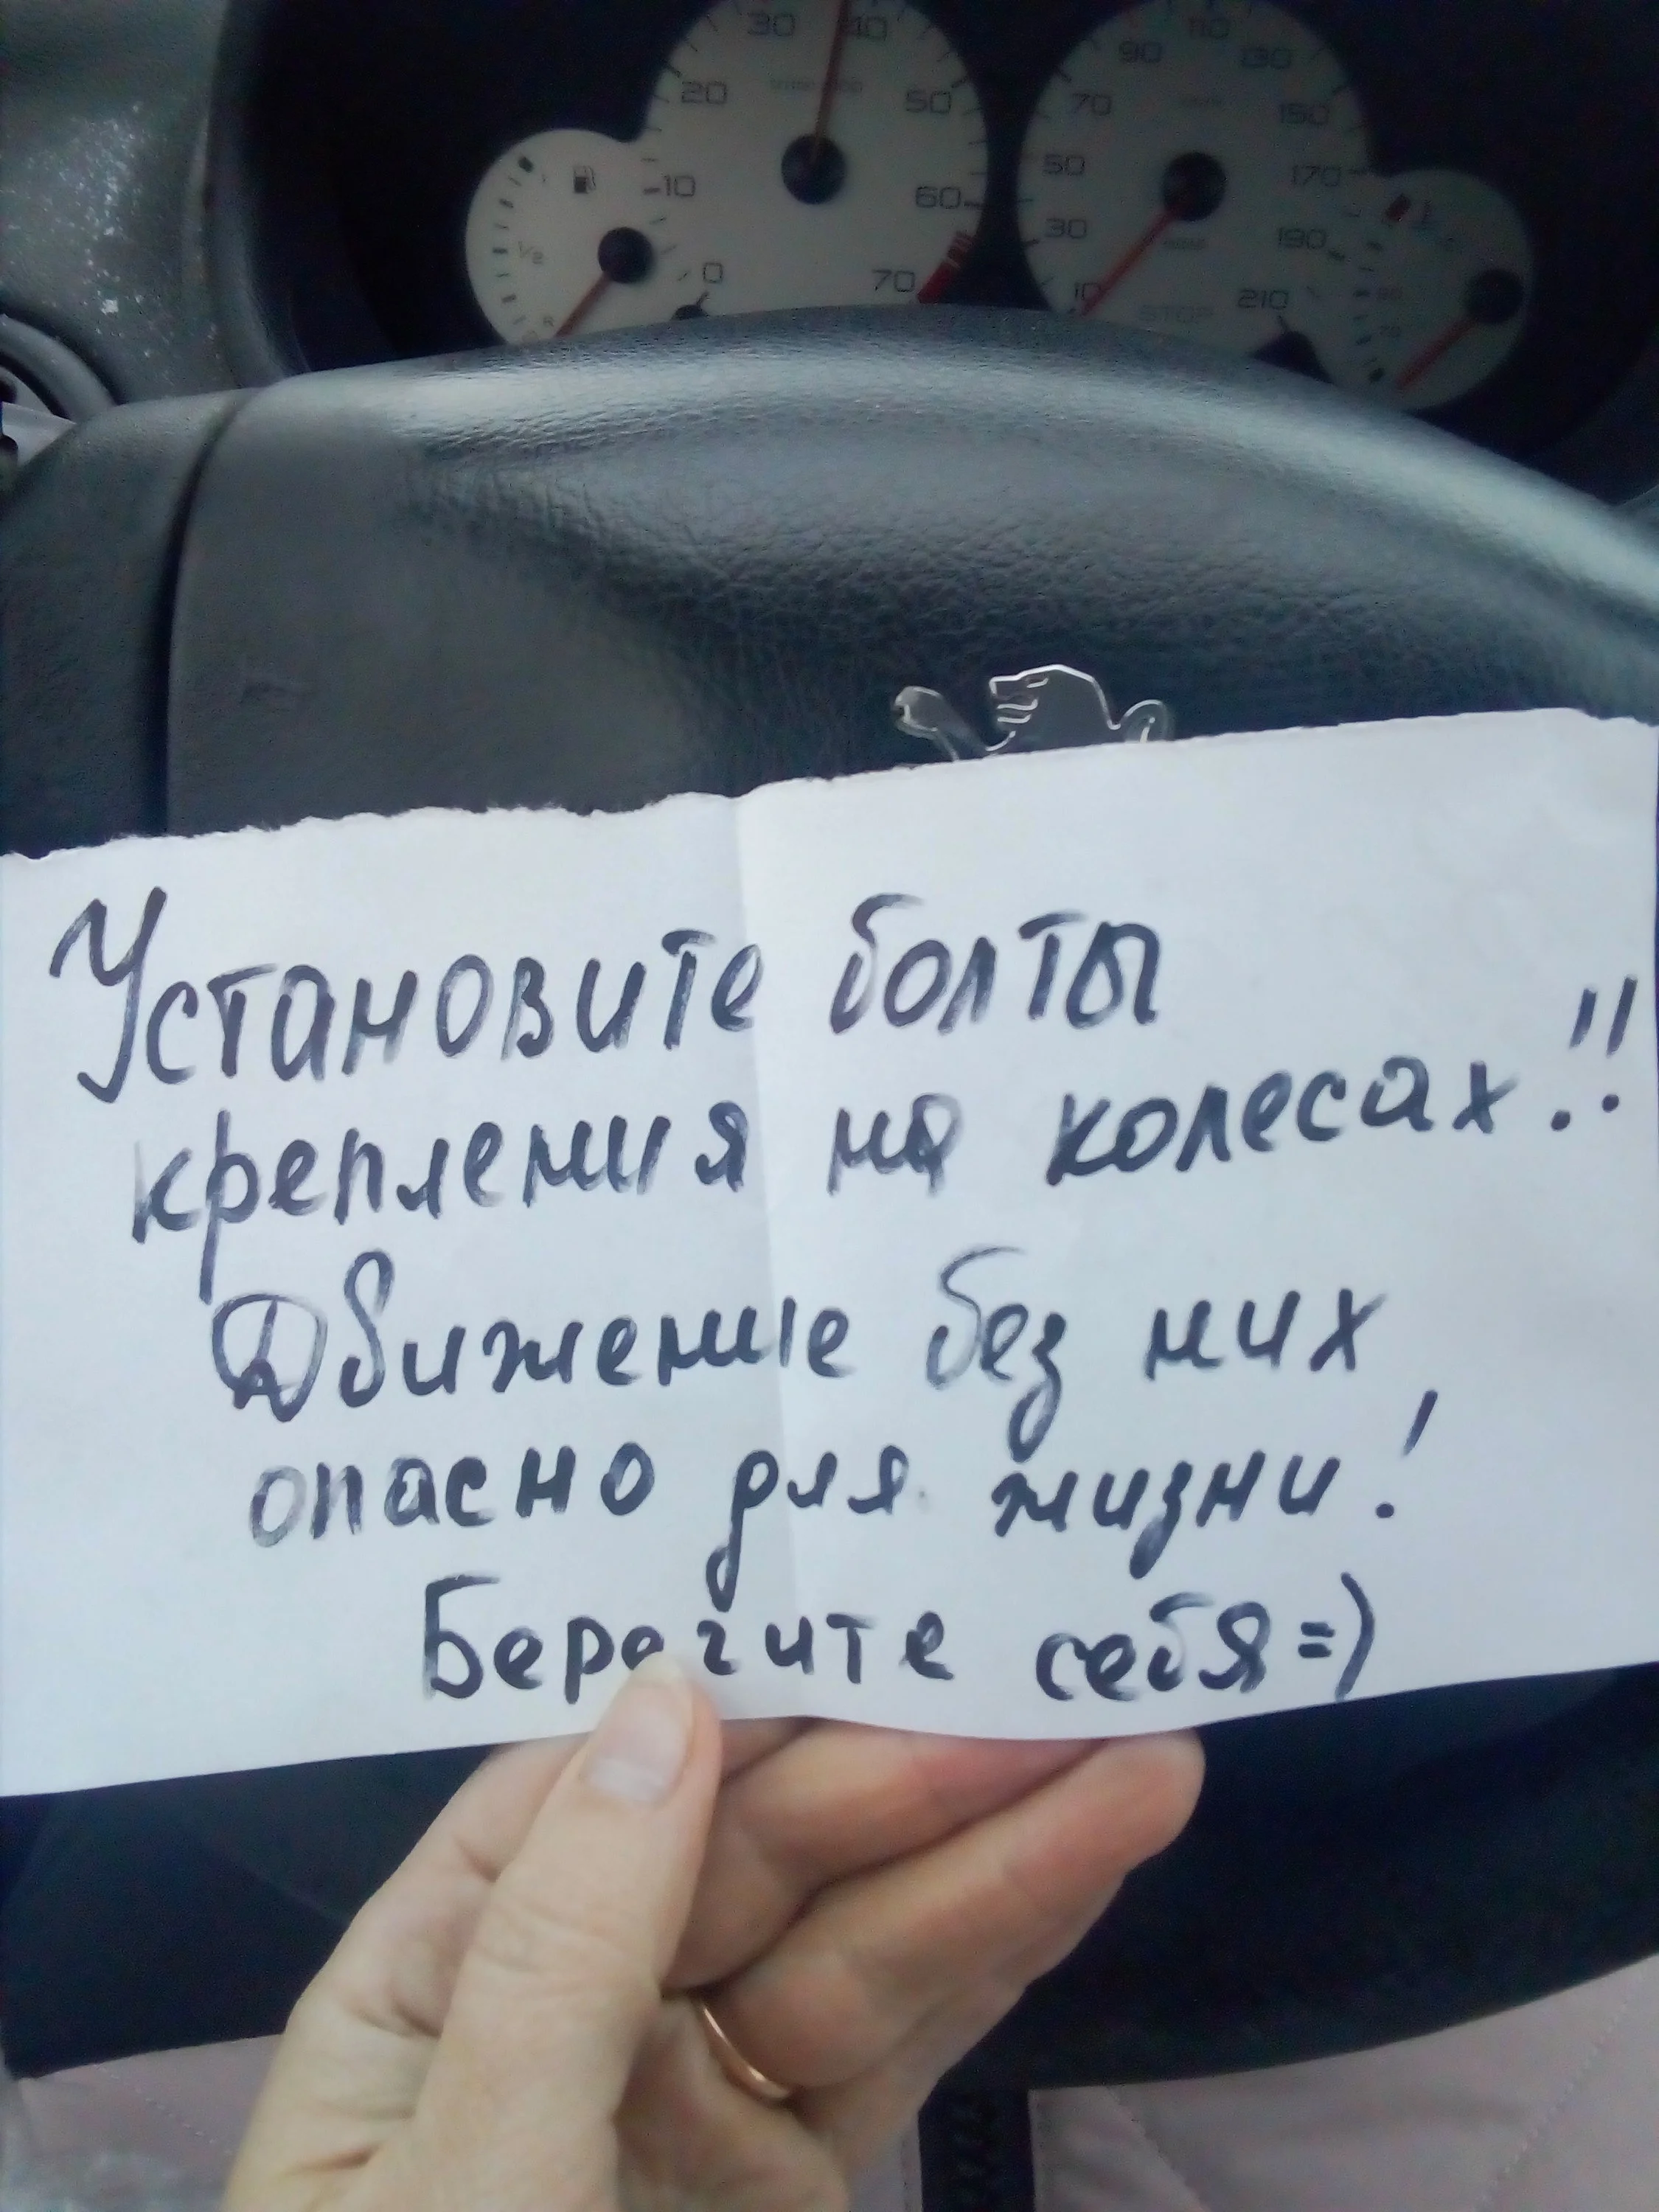 30 40
20 50
10 60
0 70
1/2
R
90 110 130
70 150
50 170
30 190
10 210
STOP
Установите болты
крепления на колесах!!
Движение без них
опасно для жизни!
Берегите себя =)